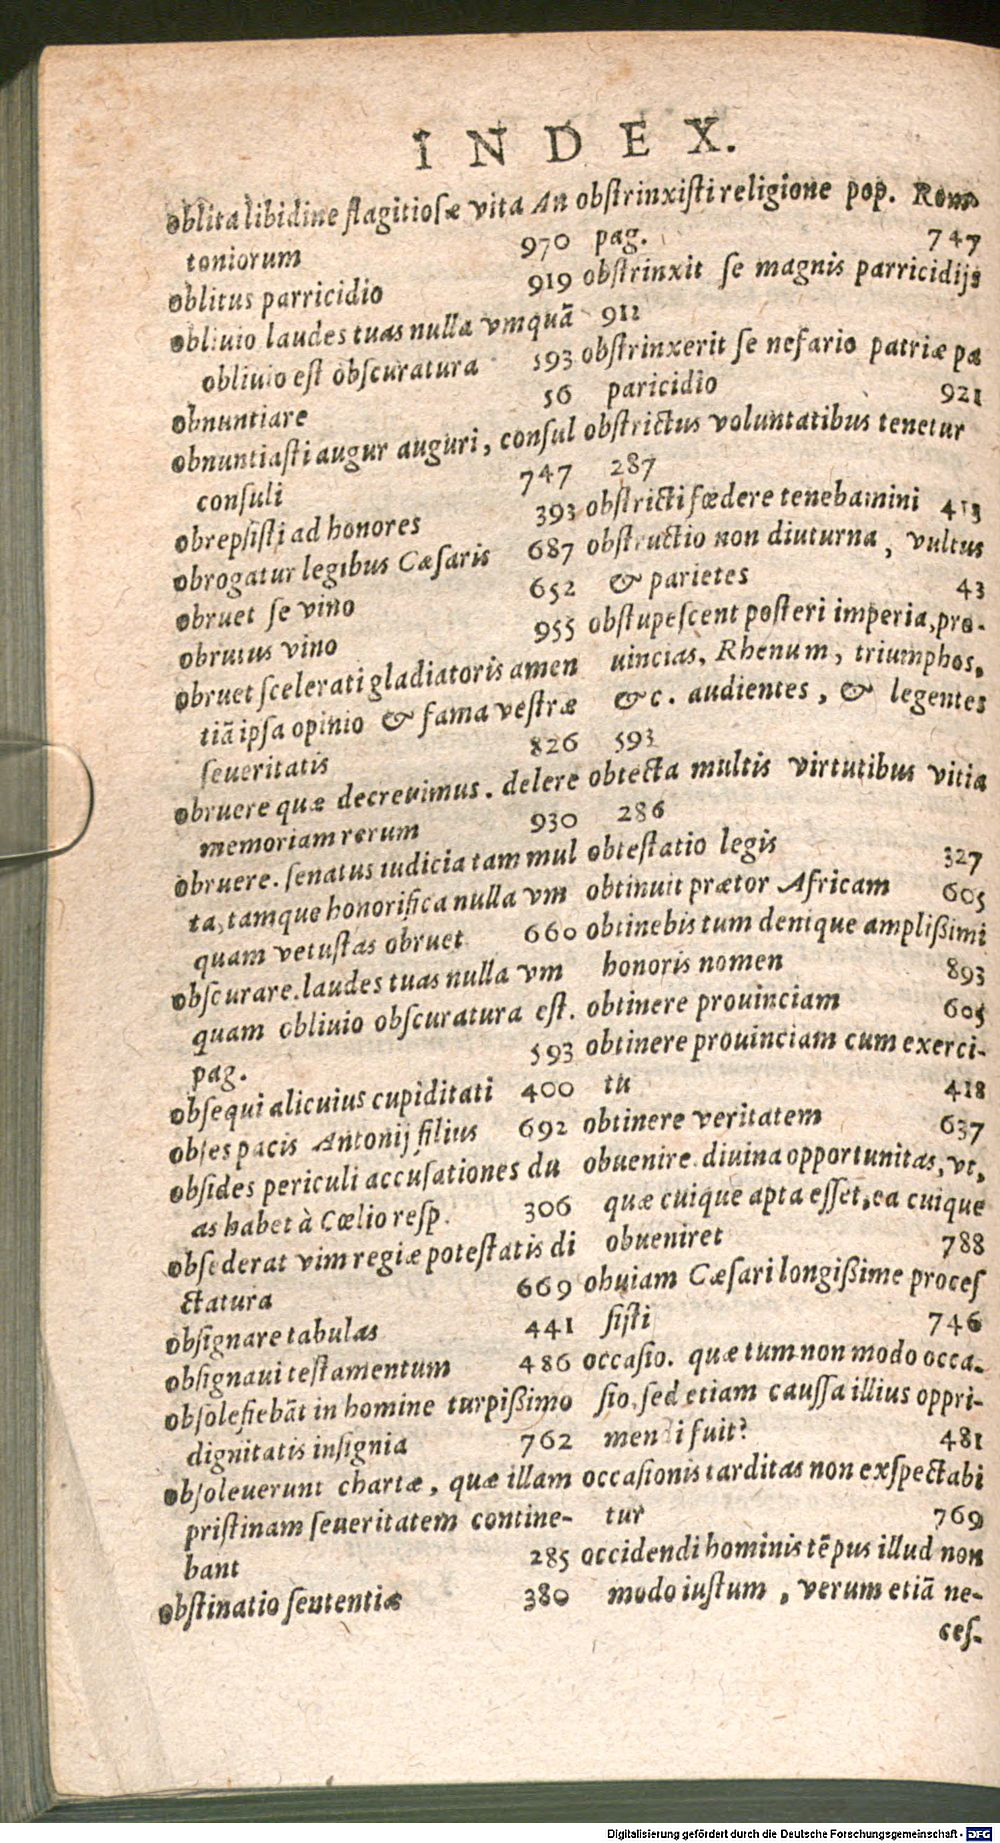 INDEX.
oblita libidine flagitioſæ vita An
toniorum 970
oblitus parricidio 919
obliuio laudes tuas nulla vmquā
obliuio eſt obſcuratura 593
obnuntiare 56
obnuntiaſti augur auguri, conſul
conſuli 747
obrepſiſti ad honores 393
obrogatur legibus Cæſaris 687
obruet ſe vino 652
obrutus vino 955
obruet ſcelerati gladiatoris amen
tiā ipſa opinio & fama veſtræ
ſeueritatis 826
obruere quæ decreuimus. delere
memoriam rerum 930
obruere. ſenatus iudicia tam mul
ta, tamque honorifica nulla vm
quam vetuſtas obruet 660
obſcurare. laudes tuas nulla vm
quam obliuio obſcuratura eſt.
pag. 593
obſequi alicuius cupiditati 400
obſes pacis Antonij filius 692
obſides periculi accuſationes du
as habet à Cœlio reſp. 306
obſederat vim regiæ poteſtatis di
ctatura 669
obſignare tabulas 441
obſignaui teſtamentum 486
obſolefiebāt in homine turpißimo
dignitatis inſignia 762
obſoleuerunt chartæ, quæ illam
priſtinam ſeueritatem contine-
bant 285
obſtinatio ſententiæ 380
obſtrinxiſti religione pop. Rom.
pag. 747
obſtrinxit ſe magnis parricidijs
912
obſtrinxerit ſe nefario patriæ pa
paricidio 921
obſtrictus voluntatibus tenetur
287
obſtricti fœdere tenebamini 413
obſtructio non diuturna, vultus
& parietes 43
obſtupeſcent poſteri imperia, pro-
uincias, Rhenum, triumphos,
&c. audientes, & legentes
593
obtecta multis virtutibus vitia
286
obteſtatio legis 327
obtinuit prætor Africam 605
obtinebis tum denique amplißimi
honoris nomen 893
obtinere prouinciam 605
obtinere prouinciam cum exerci-
tu 418
obtinere veritatem 637
obuenire. diuina opportunitas, vt,
quæ cuique apta eſſet, ea cuique
obueniret 788
obuiam Cæſari longißime proceſ
ſiſti 746
occaſio. quæ tum non modo occa-
ſio, ſed etiam cauſſa illius oppri-
mendi fuit? 481
occaſionis tarditas non exſpectabi
tur 769
occidendi hominis tēpus illud non
modo iuſtum, verum etiā ne-
ceſ-
Digitalisierung gefördert durch die Deutsche Forschungsgemeinschaft - DFG